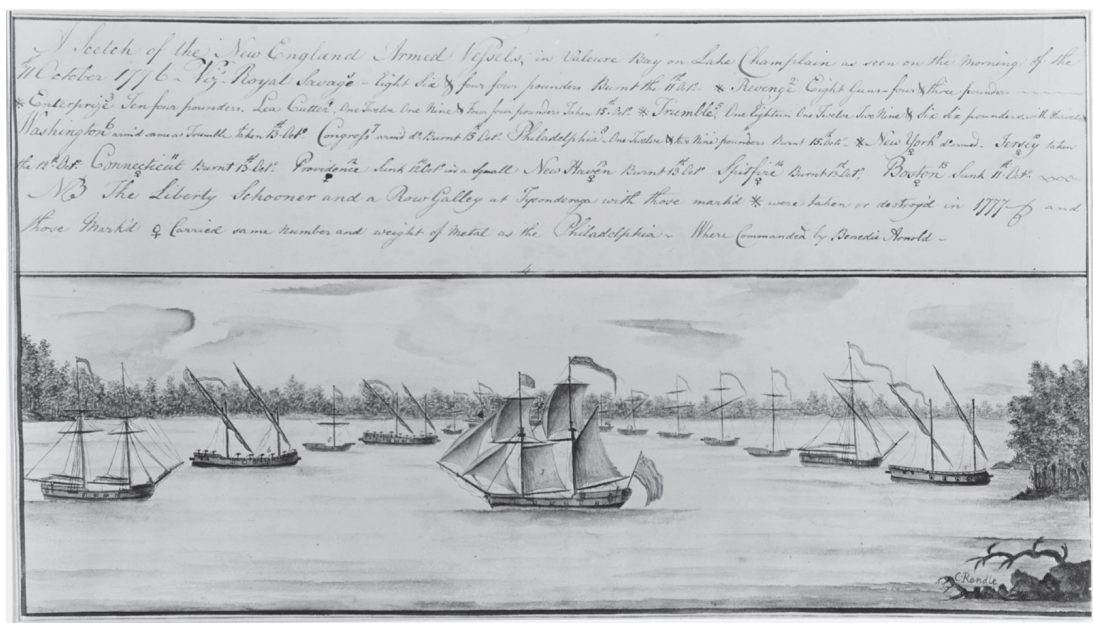 A Scetch of the New England Armed Vessels, in Valeure Bay on Lake Champlain as seen on the morning of the
11th October 1776 - Viz. Royal Savage - Eight Six & four four pounders Burnt the 11th Oct. * Revenge 2 Eight Guns - four & three pounders
* Enterprize Ten four pounders. Lea Cutter. One Twelve One Nine & Four four pounders Taken 15th Oct. * Trumble 5 One Eighteen One Twelve Two Nine & Six Six pounders, with
Washington 6 arm'd same as Trumble taken 13th Oct. Congress 7 armd do. Burnt 15 Oct. Philadelphia 8. One Twelve & two Nine pounders Burnt 15 Octo. * New York 9 do. armed. Jersey 10 taken
the 12th Oct. Connecticut 11 Burnt 13th Oct. Providence 12 Sunk 12th Oct. in a Small New Haven Burnt 13th Oct. Spitfire 14 Burnt 13th Oct. Boston 15 Sunk 11th Oct.
NB The Liberty Schooner and a Row Galley at Ticonderoga with those mark'd * were taken or destroy'd in 1777 and
those Mark'd ♀ Carried same number and weight of Metal as the Philadelphia - Where Commanded by Benedic Arnold -
1
C Randle